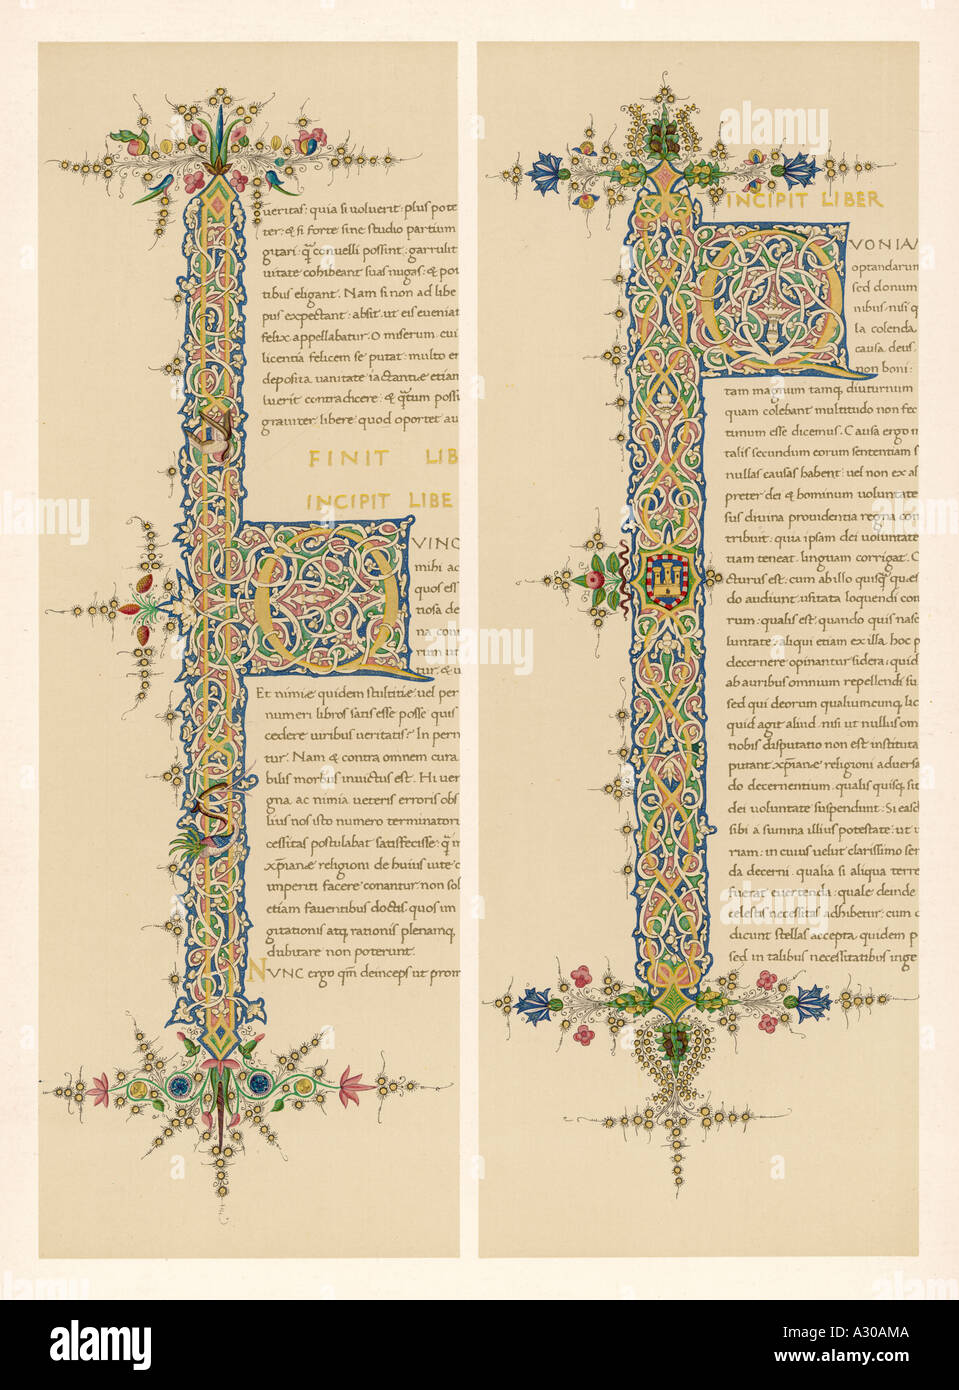 veritas: quia si voluerit: plus pote
ter: & si forte sine studio partium
gitari: q̃ convelli possint: garrulit
vitate cohibeant suas nugas: & pot
tibus eligant. Nam si non ad libe
pus expectant: absit: ut eis eveniat
felix appellabatur. O miserum cui
licentia felicem se putat: multo er
deposita vanitate iactantiæ etiam
luerit contradicere: & q̃tum possi
graviter libere quod oportet au
FINIT LIB
INCIPIT LIBE
VINC
mihi ac
quos ess
riosa de
na com
rum ut
tur: & u
Et nimiæ quidem stultitiæ: vel per
numeri libros satis esse posse quis
cedere viribus veritatis: In pern
tur. Nam & contra omnem cura
bilis morbus invictus est. Hi ver
gna, ac nimia veteris erroris obs
lius nos isto numero terminator
cessitas postulabat satisfecisse: q̃ i
xp̃ianæ religioni de huius vite c
imperiti facere conantur: non sol
etiam faventibus doctis quos in
gitationis atq, rationis plenamq,
dubitare non poterunt.
NVNC ergo qm̃ deinceps ut prom
INCIPIT LIBER
VONIAM
optandarum
sed donum
nibus: nisi q
la colenda,
causa deus.
non boni:
tam magnum tamq, diuturnum
quam colebant multitudo non fec
timum esse dicemus. Causa ergo m
talis secundum eorum sententiam s
nullas causas habent: vel non ex al
preter dei & hominum voluntate
sus divina providentia regna con
tribuit: quia ipsam dei voluntate
tiam teneat. linguam corrigat. C
cturus est: cum ab illo quisq, que
do audiunt: usitata loquendi con
rum: qualis est: quando quis nasc
luntate: aliqui etiam ex illa. hoc p
decernere opinantur sidera: quid
ab auribus omnium repellendi su
sed qui deorum qualiumcunq, lic
quid agit aliud. nisi ut nullus om
nobis disputatio non est instituta
putant: xp̃ianæ religioni adversa
do decernentium. qualis quisq, sit
dei voluntate suspendunt: Si easd
sibi a summa illius potestate: ut v
riam: in cuius velut clarissimo sen
da decerni. qualia si aliqua terre
fuerat evertenda: quale deinde
celestis necessitas adhibetur: cum c
dicunt stellas accepta quidem p
sed in talibus necessitatibus inge
alamy
Image ID: A30AMA
www.alamy.com